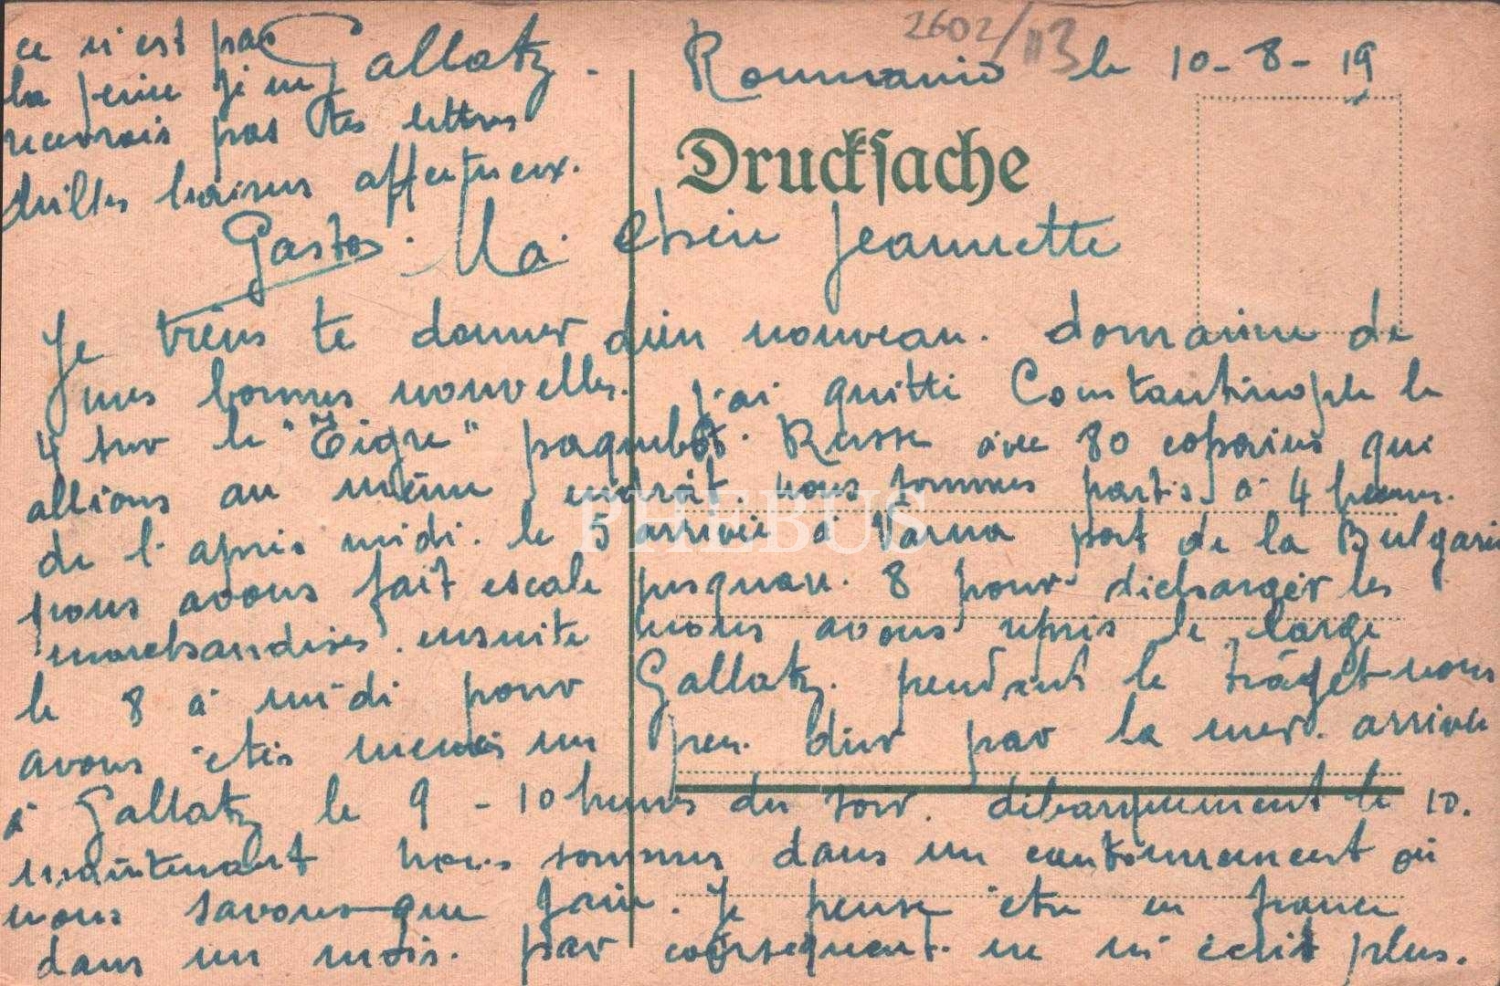 2602/113
Gallatz. Roumanie le 10-8-19
Drucksache
Ma Chère Jeannette
Je viens te donner bien nouveau. de
mes bonnes nouvelles. j'ai quitté Constantinople le
4 sur le "Tigre" paquebot. Russe avec 80 copains qui
allions au même endroit. nous sommes partis à 4 heures.
de l'après midi. le 5 arrivée à Varna port de la Bulgarie
nous avons fait escale jusquau. 8 pour décharger les
marchandises. ensuite nous avons repris le large
le 8 à midi pour Gallatz. pendant le trajet nous
avons étés menés un peu. dur par la mer. arrivée
à Gallatz le 9 - 10 heures du soir. débarquement le 10.
maintenant nous sommes dans un cantonnement où
nous savons que faire. Je pense etre en france
dans un mois. par consequent. ne m'écrit plus.
ce n'est pas
la peine je n'en
recevrais pas tes lettres
milles baisers affectueux.
Gaston
PHEBUS